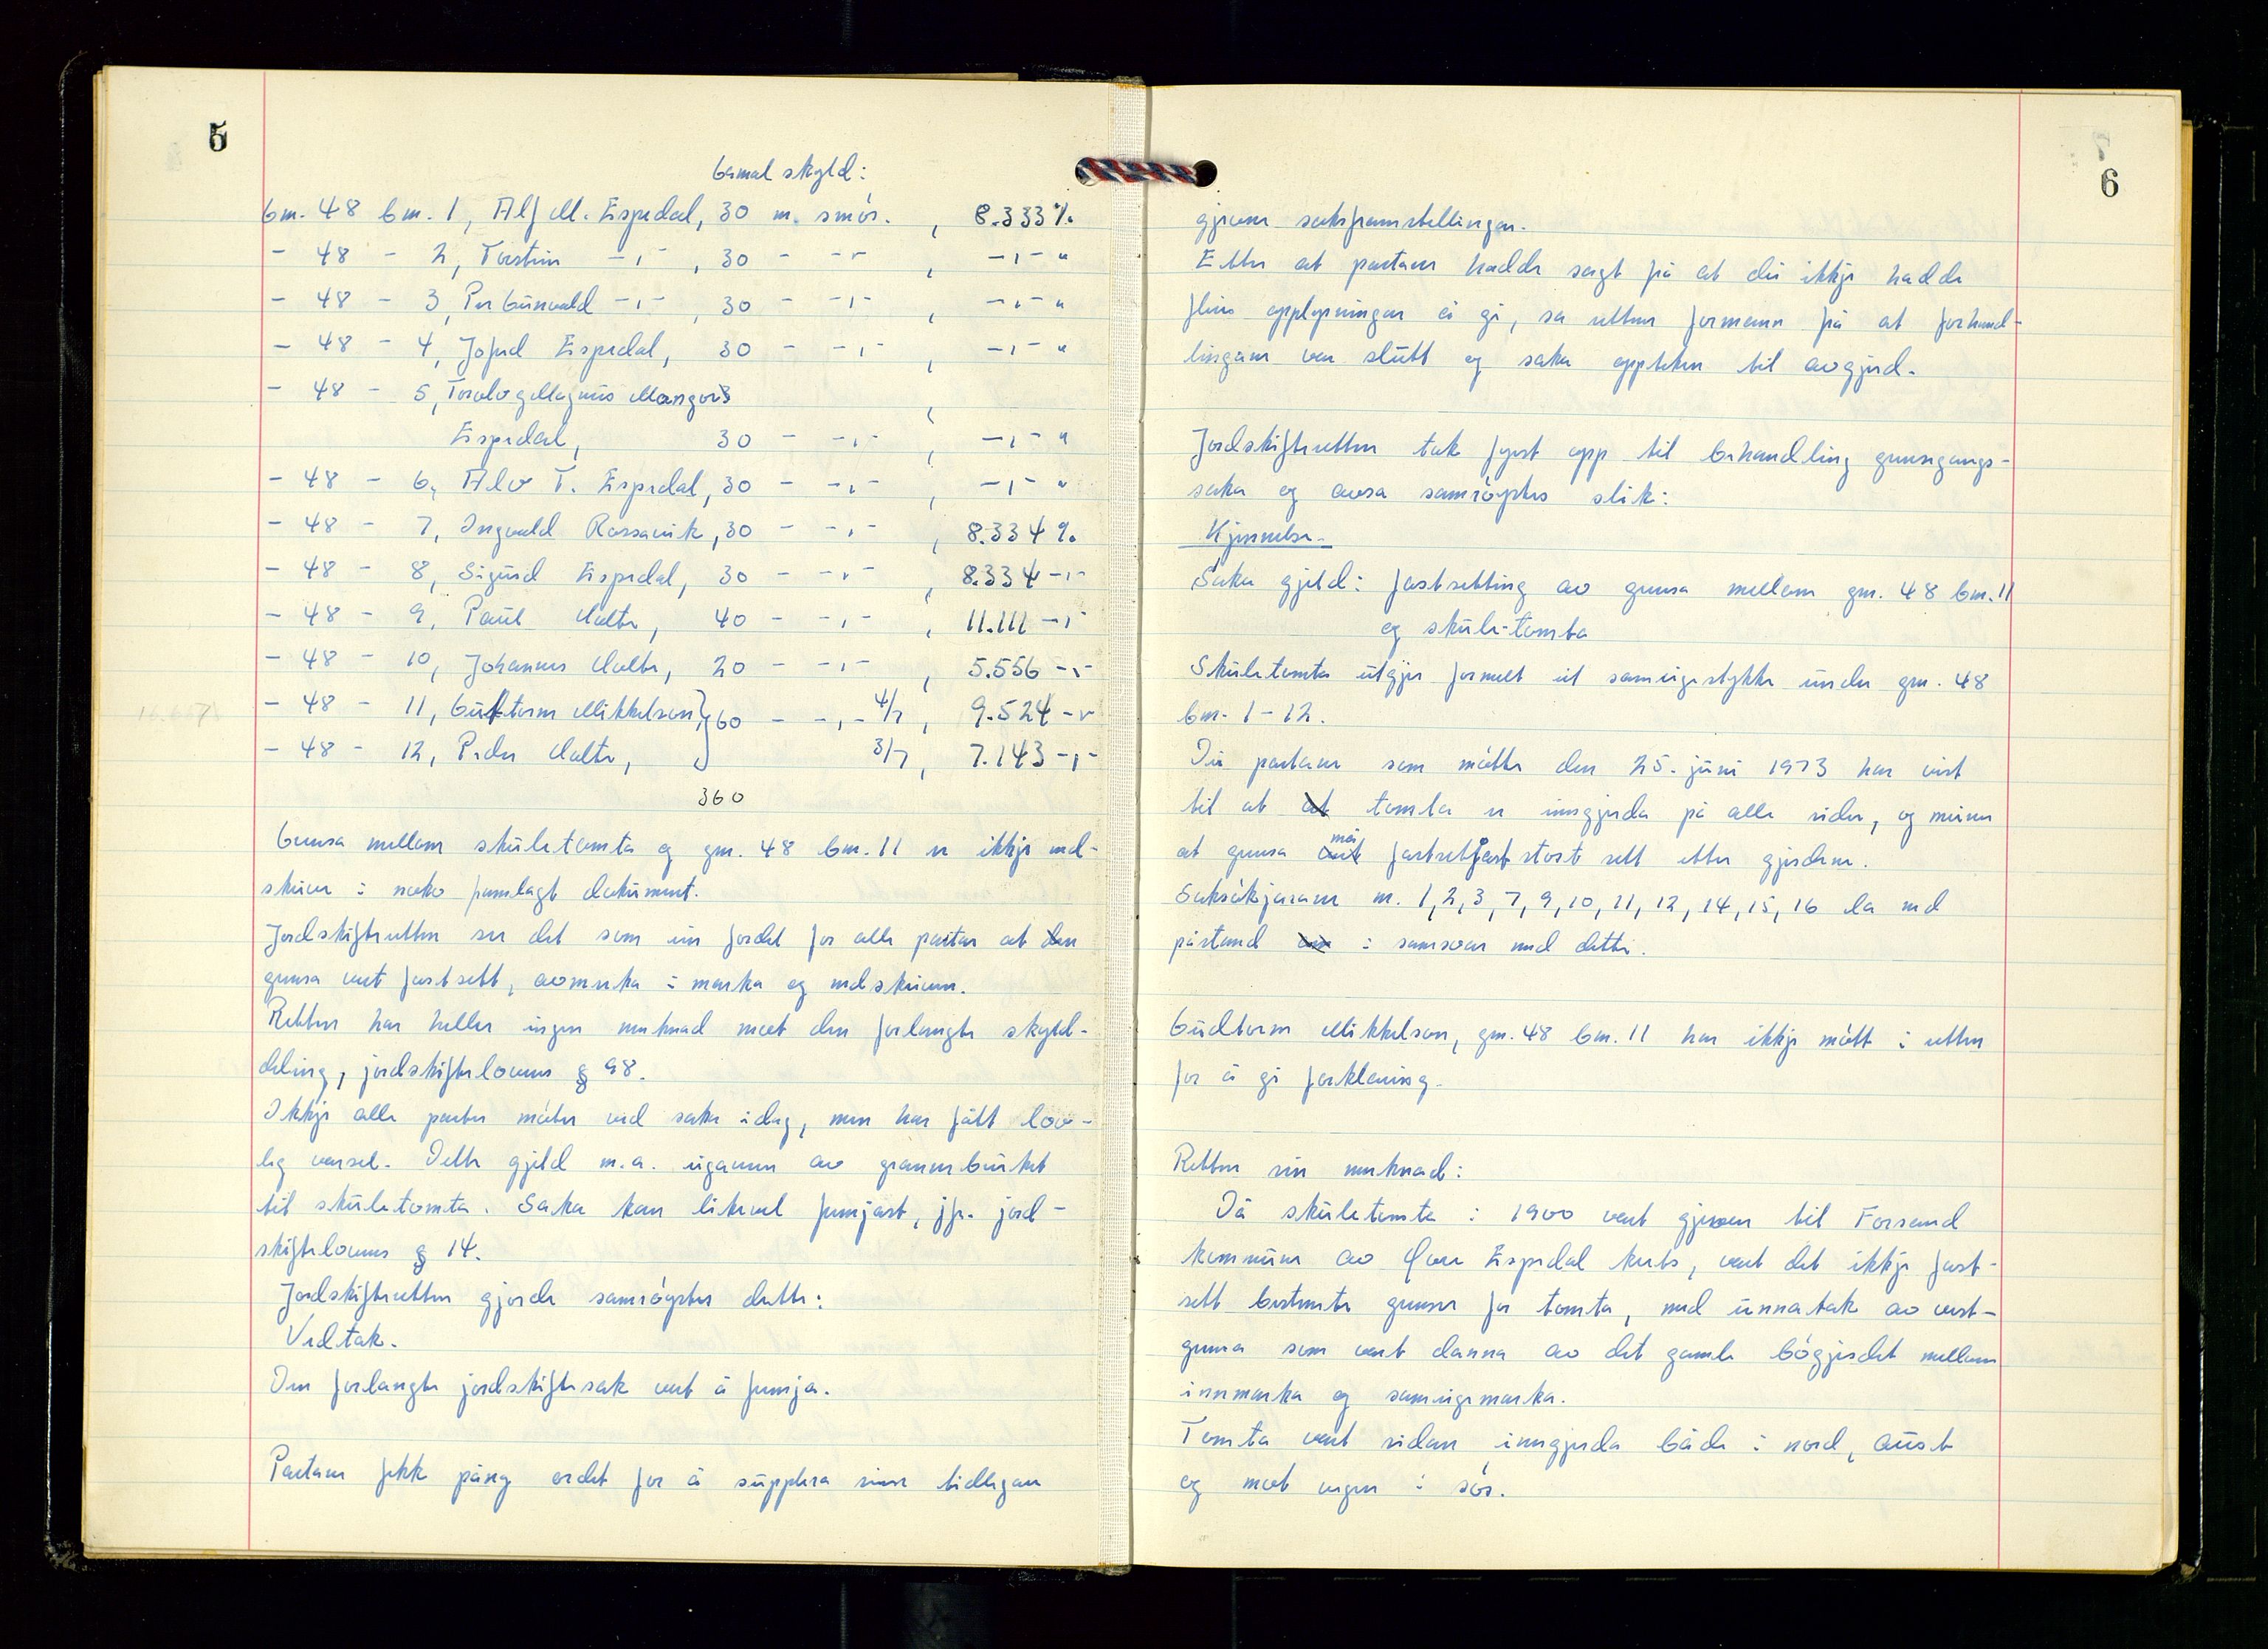 5
Gamal skyld:
Gnr. 48 bnr. 1, Alf M. Espedal, 30 m. smör. , 8.333 %
- 48 - 2, Torstein -"- , 30 - -"- , -"- "
- 48 - 3, Per Gunvald -"- , 30 - -"- , -"- "
- 48 - 4, Jofrid Espedal, 30 - -"- , -"- "
- 48 - 5, Torolv og Magnus Mangor
Espedal, 30 - -"- , -"- "
- 48 - 6, Alv T. Espedal, 30 - -"- , -"- "
- 48 - 7, Ingvald Rossavik, 30 - -"- , 8.334 %
- 48 - 8, Sigurd Espedal, 30 - -"- , 8.334 -"-
- 48 - 9, Paul Malte, 40 - -"- , 11.111 -"-
- 48 - 10, Johannes Malte, 20 - -"- , 5.556 -"-
- 48 - 11, Guttorm Mikkelson, } 60 - -"- 4/7 , 9.524 -"-
- 48 - 12, Peder Malte, 3/7 , 7.143 -"-
360
Grensa mellom skuletomta og gnr. 48 bnr. 11 er ikkje ned-
skriven i noko framlagt dokument.
Jordskifteretten ser det som ein fordel for alle partar at den
grensa vert fastsett, avmerka i marka og nedskriven.
Retten har heller ingen merknad mot den forlangte skyld-
deling, jordskiftelovens § 98.
Ikkje alle parter møter ved saka idag, men har fått lov-
leg varsel. Dette gjeld m.a. eigaren av grannebruket
til skuletomta. Saka kan likevel fremjast, jfr. jord-
skiftelovens § 14.
Jordskifteretten gjorde samröystes dette:
Vedtak.
Den forlangte jordskiftesak vert å fremja.
Partane fekk påny ordet for å supplera sine tidlegare
6
gjevne saksframstellingar.
Etter at partane hadde sagt frå at dei ikkje hadde
fleire opplysningar å gi, sa rettens formann frå at forhand-
lingane var slutt og saka oppteken til avgjerd.
Jordskifteretten tok fyrst opp til behandling grensegangs-
saka og avsa samröystes slik:
Kjennelse.
Saka gjeld: fastsetting av grensa mellom gnr. 48 bnr. 11
og skule-tomta
Skuletomta utgjer formelt eit sameigestykke under gnr. 48
bnr. 1-12.
Dei partane som møtte den 25. juni 1973 har vist
til at at tomta er inngjerda på alle sider, og meiner
at grensa må fastsetjast stort sett etter gjerdene.
Saksøkjarane nr. 1, 2, 3, 7, 9, 10, 11, 12, 14, 15, 16 la ned
påstand om i samsvar med dette.
Gudtorm Mikkelson, gnr. 48 bnr. 11 har ikkje møtt i retten
for å gi forklaring.
Retten sin merknad:
Då skuletomta i 1900 vart gjeven til Forsand
kommune av Øvre Espedal krets, vart det ikkje fast-
sett bestemte grenser for tomta, med unnatak av vest-
grensa som vart danna av det gamle bøgjerdet mellom
innmarka og sameigemarka.
Tomta vart sidan inngjerda både i nord, aust
og mot vegen i sör.